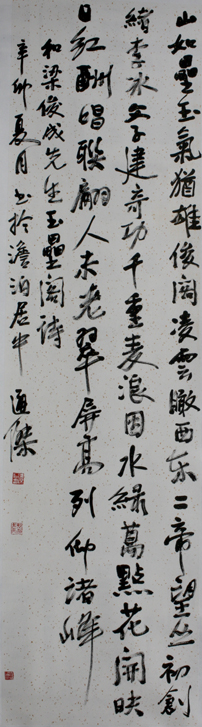 山如壘玉氣猶雄俊閣凌雲瞰西东二帝望丛初創
續李冰父子建奇功千重麦浪因水緑萬點花開映
日红酬唱聯翩人未老翠屏髙列仰諸峰
和梁俊成先生玉壘阁詩
辛卯夏月书於澹泊居中 通傑